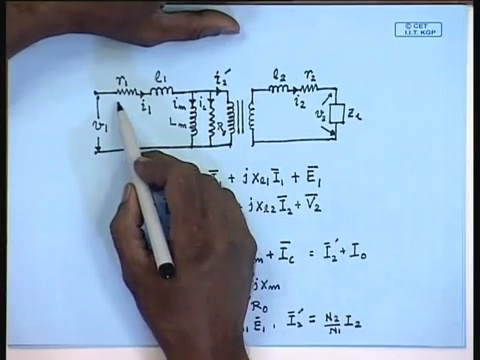 © CET
I.I.T. KGP
r₁ l₁ i₂′ l₂ r₂
i₁ i_m i_c i₂
v₁ L_m v₂ Z_L
Ī₁ + j x_l1 Ī₁ + Ē₁
j x_l2 Ī₂ + V̄₂
+ Ī_c = Ī₂′ + I₀
j x_m
R₀
Ē₁ , Ī₂′ = N₂/N₁ I₂